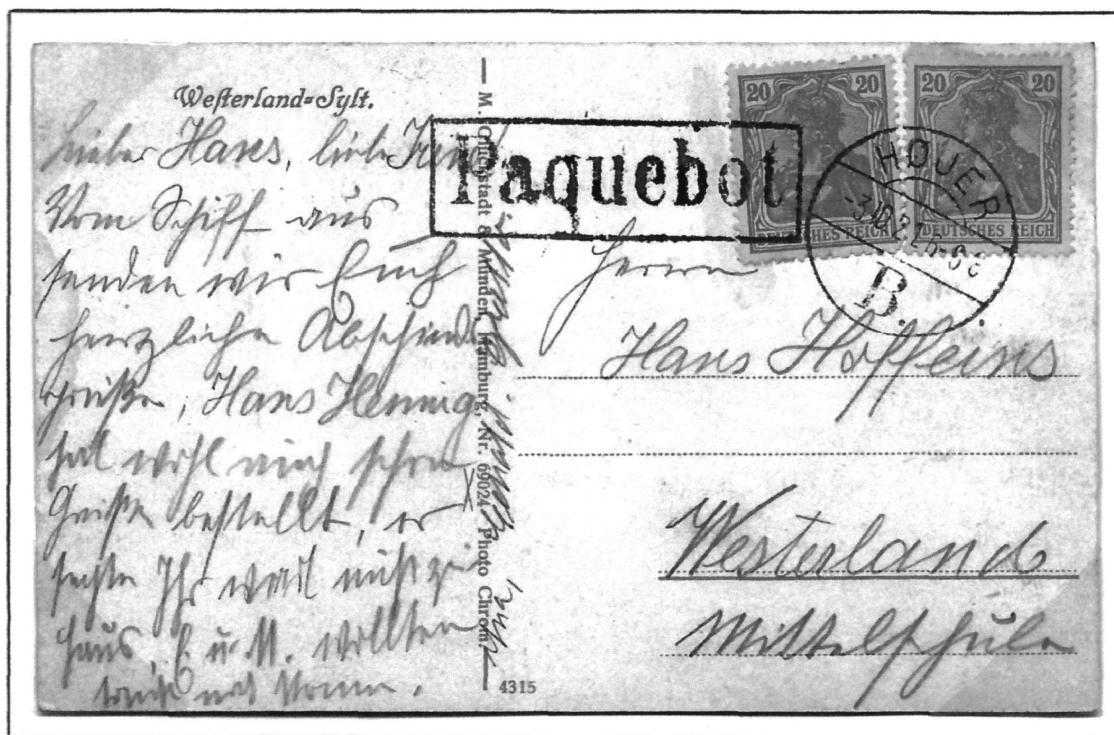 Westerland=Sylt.
Lieber Hans, liebe
Vom Schiff aus
senden wir Euch
herzliche Abschieds
grüße, Hans Hennig
hat wohl auch schon
Grüße bestellt, er
sagte Ihr wart nicht zu
Haus, E. u. M. wollten
— M. Glückstadt & Münden, Hamburg, Nr. 69024 Photo Chrom —
4315
Paquebot
20
20
DEUTSCHES REICH
DEUTSCHES REICH
HØJER
B.
Herrn
Hans Hoffeins
Westerland
Mittelschule